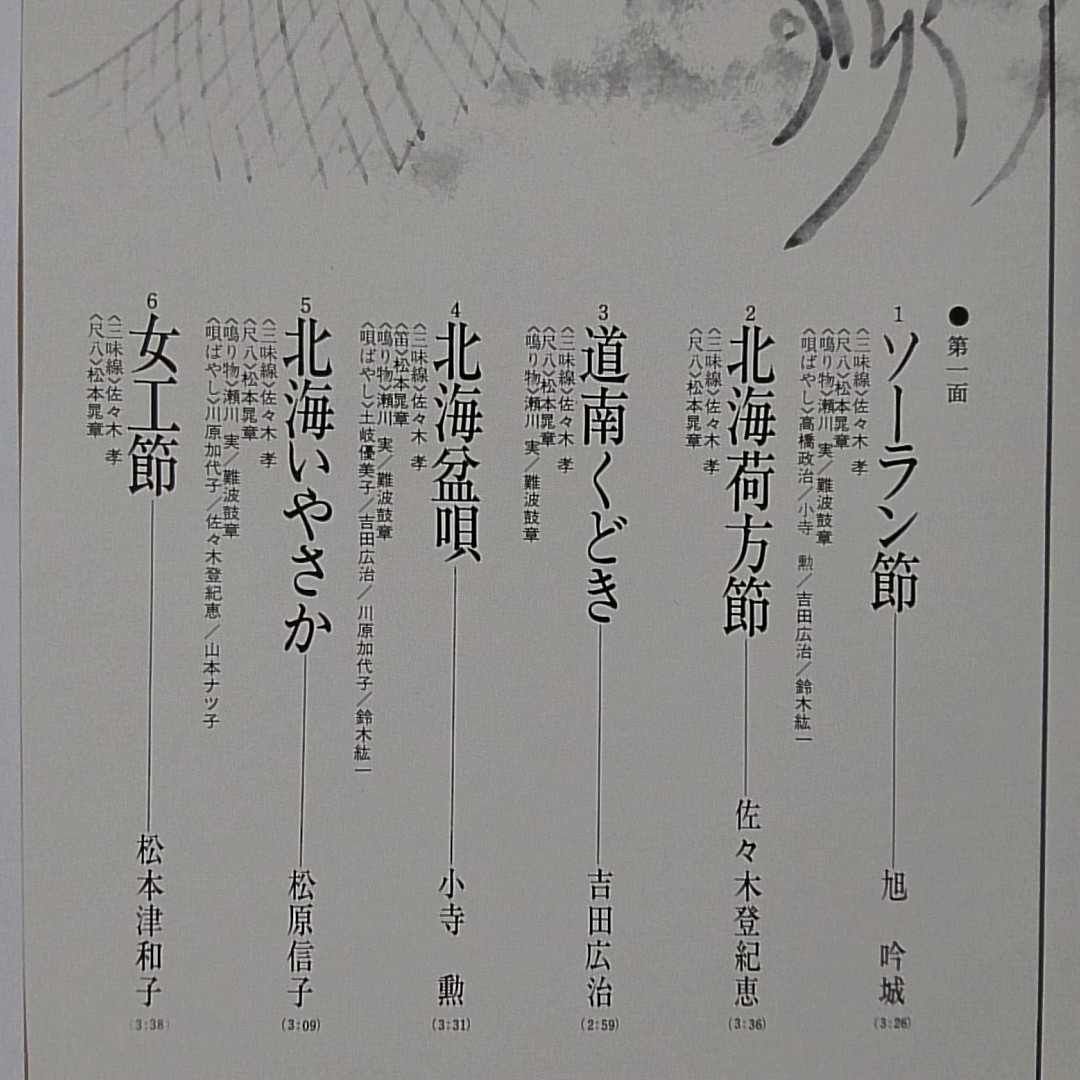 ●第一面
1
ソーラン節
旭 吟城
(3:26)
〈三味線〉佐々木 孝
〈尺八〉松本晁章
〈鳴り物〉瀬川 実／難波鼓章
〈唄ばやし〉高橋政治／小寺 勲／吉田広治／鈴木紘一
2
北海荷方節
佐々木登紀恵
(3:36)
〈三味線〉佐々木 孝
〈尺八〉松本晁章
3
道南くどき
吉田広治
(2:59)
〈三味線〉佐々木 孝
〈尺八〉松本晁章
〈鳴り物〉瀬川 実／難波鼓章
4
北海盆唄
小寺 勲
(3:31)
〈三味線〉佐々木 孝
〈笛〉松本晁章
〈鳴り物〉瀬川 実／難波鼓章
〈唄ばやし〉土岐優美子／吉田広治／川原加代子／鈴木紘一
5
北海いやさか
松原信子
(3:09)
〈三味線〉佐々木 孝
〈尺八〉松本晁章
〈鳴り物〉瀬川 実／難波鼓章
〈唄ばやし〉川原加代子／佐々木登紀恵／山本ナツ子
6
女工節
松本津和子
(3:38)
〈三味線〉佐々木 孝
〈尺八〉松本晁章